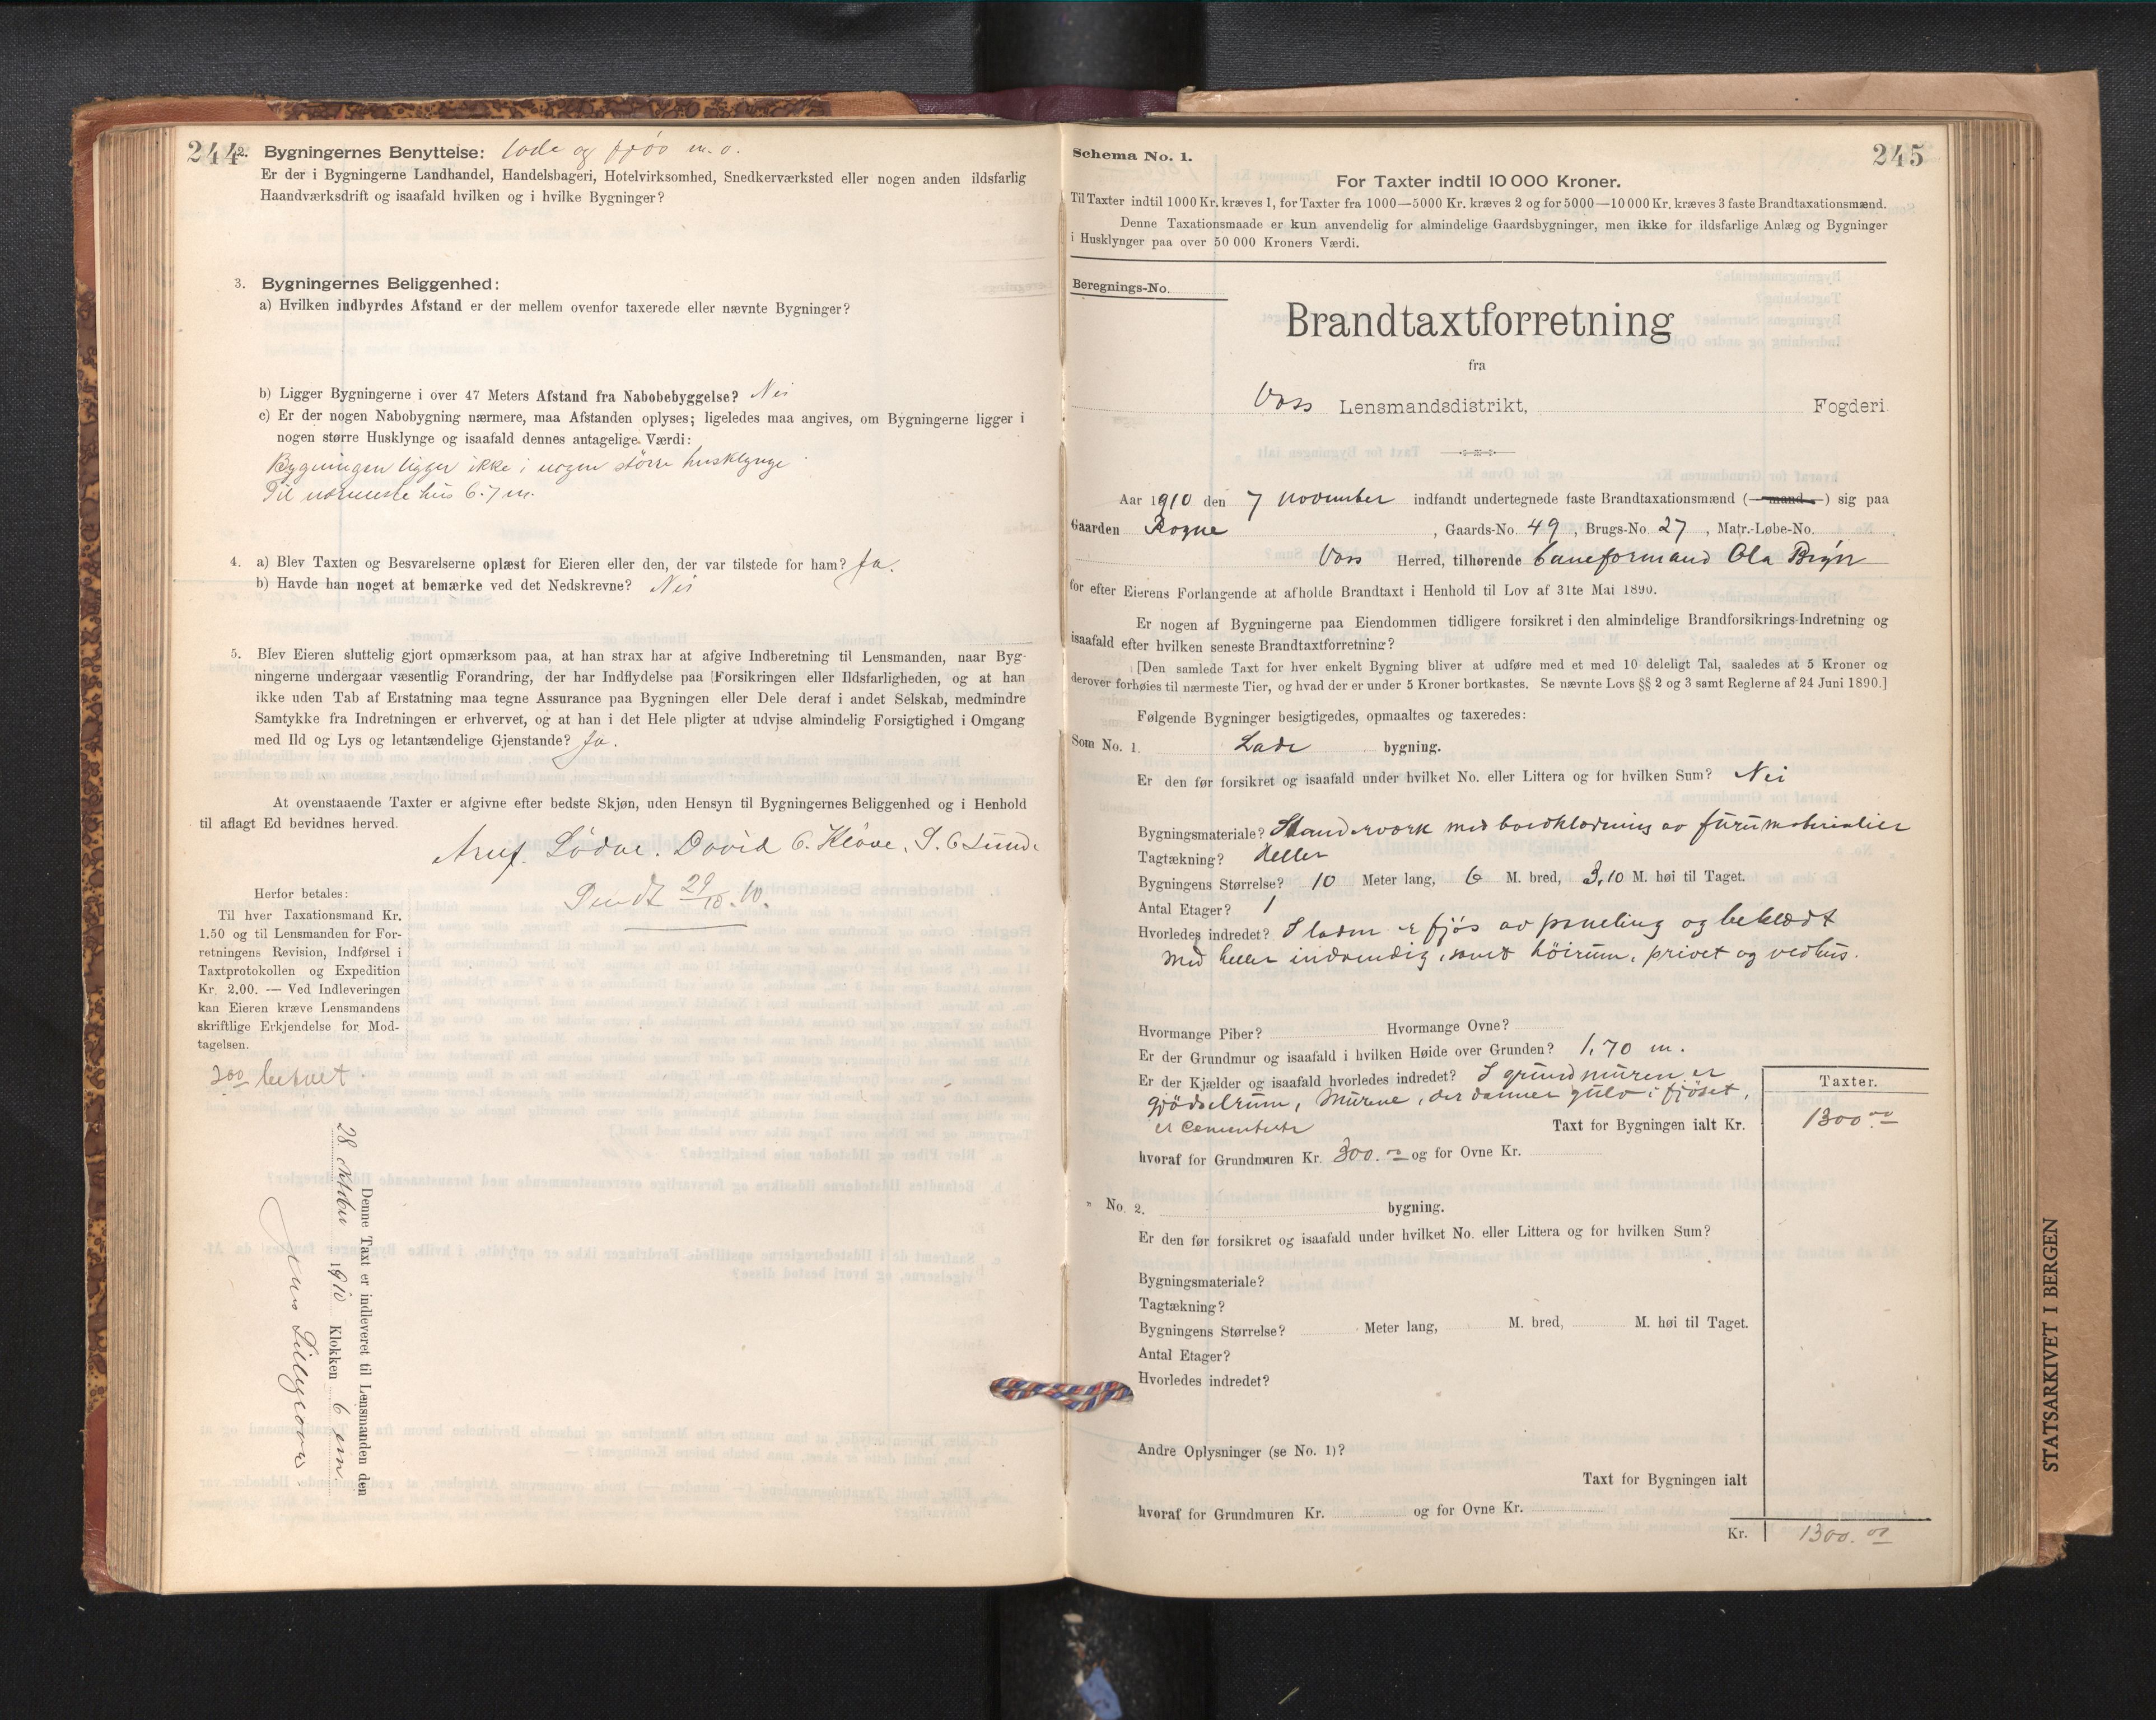 244
2. Bygningernes Benyttelse: lade og fjøs m. o.
Er der i Bygningerne Landhandel, Handelsbageri, Hotelvirksomhed, Snedkerværksted eller nogen anden ildsfarlig
Haandværksdrift og isaafald hvilken og i hvilke Bygninger?
3. Bygningernes Beliggenhed:
a) Hvilken indbyrdes Afstand er der mellem ovenfor taxerede eller nævnte Bygninger?
b) Ligger Bygningerne i over 47 Meters Afstand fra Nabobebyggelse? Nei
c) Er der nogen Nabobygning nærmere, maa Afstanden oplyses; ligeledes maa angives, om Bygningerne ligger i
nogen større Husklynge og isaafald dennes antagelige Værdi:
Bygningen ligger ikke i nogen större husklynge
Til nærmeste hus 6.7 m.
4. a) Blev Taxten og Besvarelserne oplæst for Eieren eller den, der var tilstede for ham? Ja.
b) Havde han noget at bemærke ved det Nedskrevne? Nei
5. Blev Eieren sluttelig gjort opmærksom paa, at han strax har at afgive Indberetning til Lensmanden, naar Byg-
ningerne undergaar væsentlig Forandring, der har Indflydelse paa Forsikringen eller Ildsfarligheden, og at han
ikke uden Tab af Erstatning maa tegne Assurance paa Bygningen eller Dele deraf i andet Selskab, medmindre
Samtykke fra Indretningen er erhvervet, og at han i det Hele pligter at udvise almindelig Forsigtighed i Omgang
med Ild og Lys og letantændelige Gjenstande? Ja.
At ovenstaaende Taxter er afgivne efter bedste Skjøn, uden Hensyn til Bygningernes Beliggenhed og i Henhold
til aflagt Ed bevidnes herved.
Lödve. David C. Klöve. S. C Lund.
Sendt 29/10. 10.
Herfor betales:
Til hver Taxationsmand Kr.
1.50 og til Lensmanden for For-
retningens Revision, Indførsel i
Taxtprotokollen og Expedition
Kr. 2.00. — Ved Indleveringen
kan Eieren kræve Lensmandens
skriftlige Erkjendelse for Mod-
tagelsen.
200 betalt
Denne Taxt er indleveret til Lensmanden den
28 oktober 1910 Klokken 6 em.
Schema No. 1.
245
For Taxter indtil 10 000 Kroner.
Til Taxter indtil 1000 Kr. kræves 1, for Taxter fra 1000—5000 Kr. kræves 2 og for 5000—10 000 Kr. kræves 3 faste Brandtaxationsmænd.
Denne Taxationsmaade er kun anvendelig for almindelige Gaardsbygninger, men ikke for ildsfarlige Anlæg og Bygninger
i Husklynger paa over 50 000 Kroners Værdi.
Beregnings-No.
Brandtaxtforretning
fra
Voss Lensmandsdistrikt, Fogderi.
Aar 1910 den 7 november indfandt undertegnede faste Brandtaxationsmænd (—mand—) sig paa
Gaarden Rogne, Gaards-No. 49, Brugs-No. 27, Matr.-Løbe-No.
Voss Herred, tilhørende baneformand Ola Bryn
for efter Eierens Forlangende at afholde Brandtaxt i Henhold til Lov af 31te Mai 1890.
Er nogen af Bygningerne paa Eiendommen tidligere forsikret i den almindelige Brandforsikrings-Indretning og
isaafald efter hvilken seneste Brandtaxtforretning?
[Den samlede Taxt for hver enkelt Bygning bliver at udføre med et med 10 deleligt Tal, saaledes at 5 Kroner og
derover forhøies til nærmeste Tier, og hvad der er under 5 Kroner bortkastes. Se nævnte Lovs §§ 2 og 3 samt Reglerne af 24 Juni 1890.]
Følgende Bygninger besigtigedes, opmaaltes og taxeredes:
Som No. 1. Lade bygning.
Er den før forsikret og isaafald under hvilket No. eller Littera og for hvilken Sum? Nei
Bygningsmateriale? Standerværk med bordklædning av furumaterialier
Tagtækning? Heller
Bygningens Størrelse? 10 Meter lang, 6 M. bred, 3,10 M. høi til Taget.
Antal Etager? 1
Hvorledes indredet? I laden er fjös av paneling og beklædt
med heller indvendig, samt höirum, privet og vedhus.
Hvormange Piber? Hvormange Ovne?
Er der Grundmur og isaafald i hvilken Høide over Grunden? 1,70 m.
Er der Kjælder og isaafald hvorledes indredet? I grundmuren er
gjödselrum, Murene, der danner gulv i fjöset,
er cementerte
Taxter.
Taxt for Bygningen ialt Kr. 1300.00
hvoraf for Grundmuren Kr. 300.00 og for Ovne Kr.
" No. 2. bygning.
Er den før forsikret og isaafald under hvilket No. eller Littera og for hvilken Sum?
Bygningsmateriale?
Tagtækning?
Bygningens Størrelse? Meter lang, M. bred, M. høi til Taget.
Antal Etager?
Hvorledes indredet?
Andre Oplysninger (se No. 1)?
Taxt for Bygningen ialt
hvoraf for Grundmuren Kr. og for Ovne Kr.
Kr. 1300.00
STATSARKIVET I BERGEN